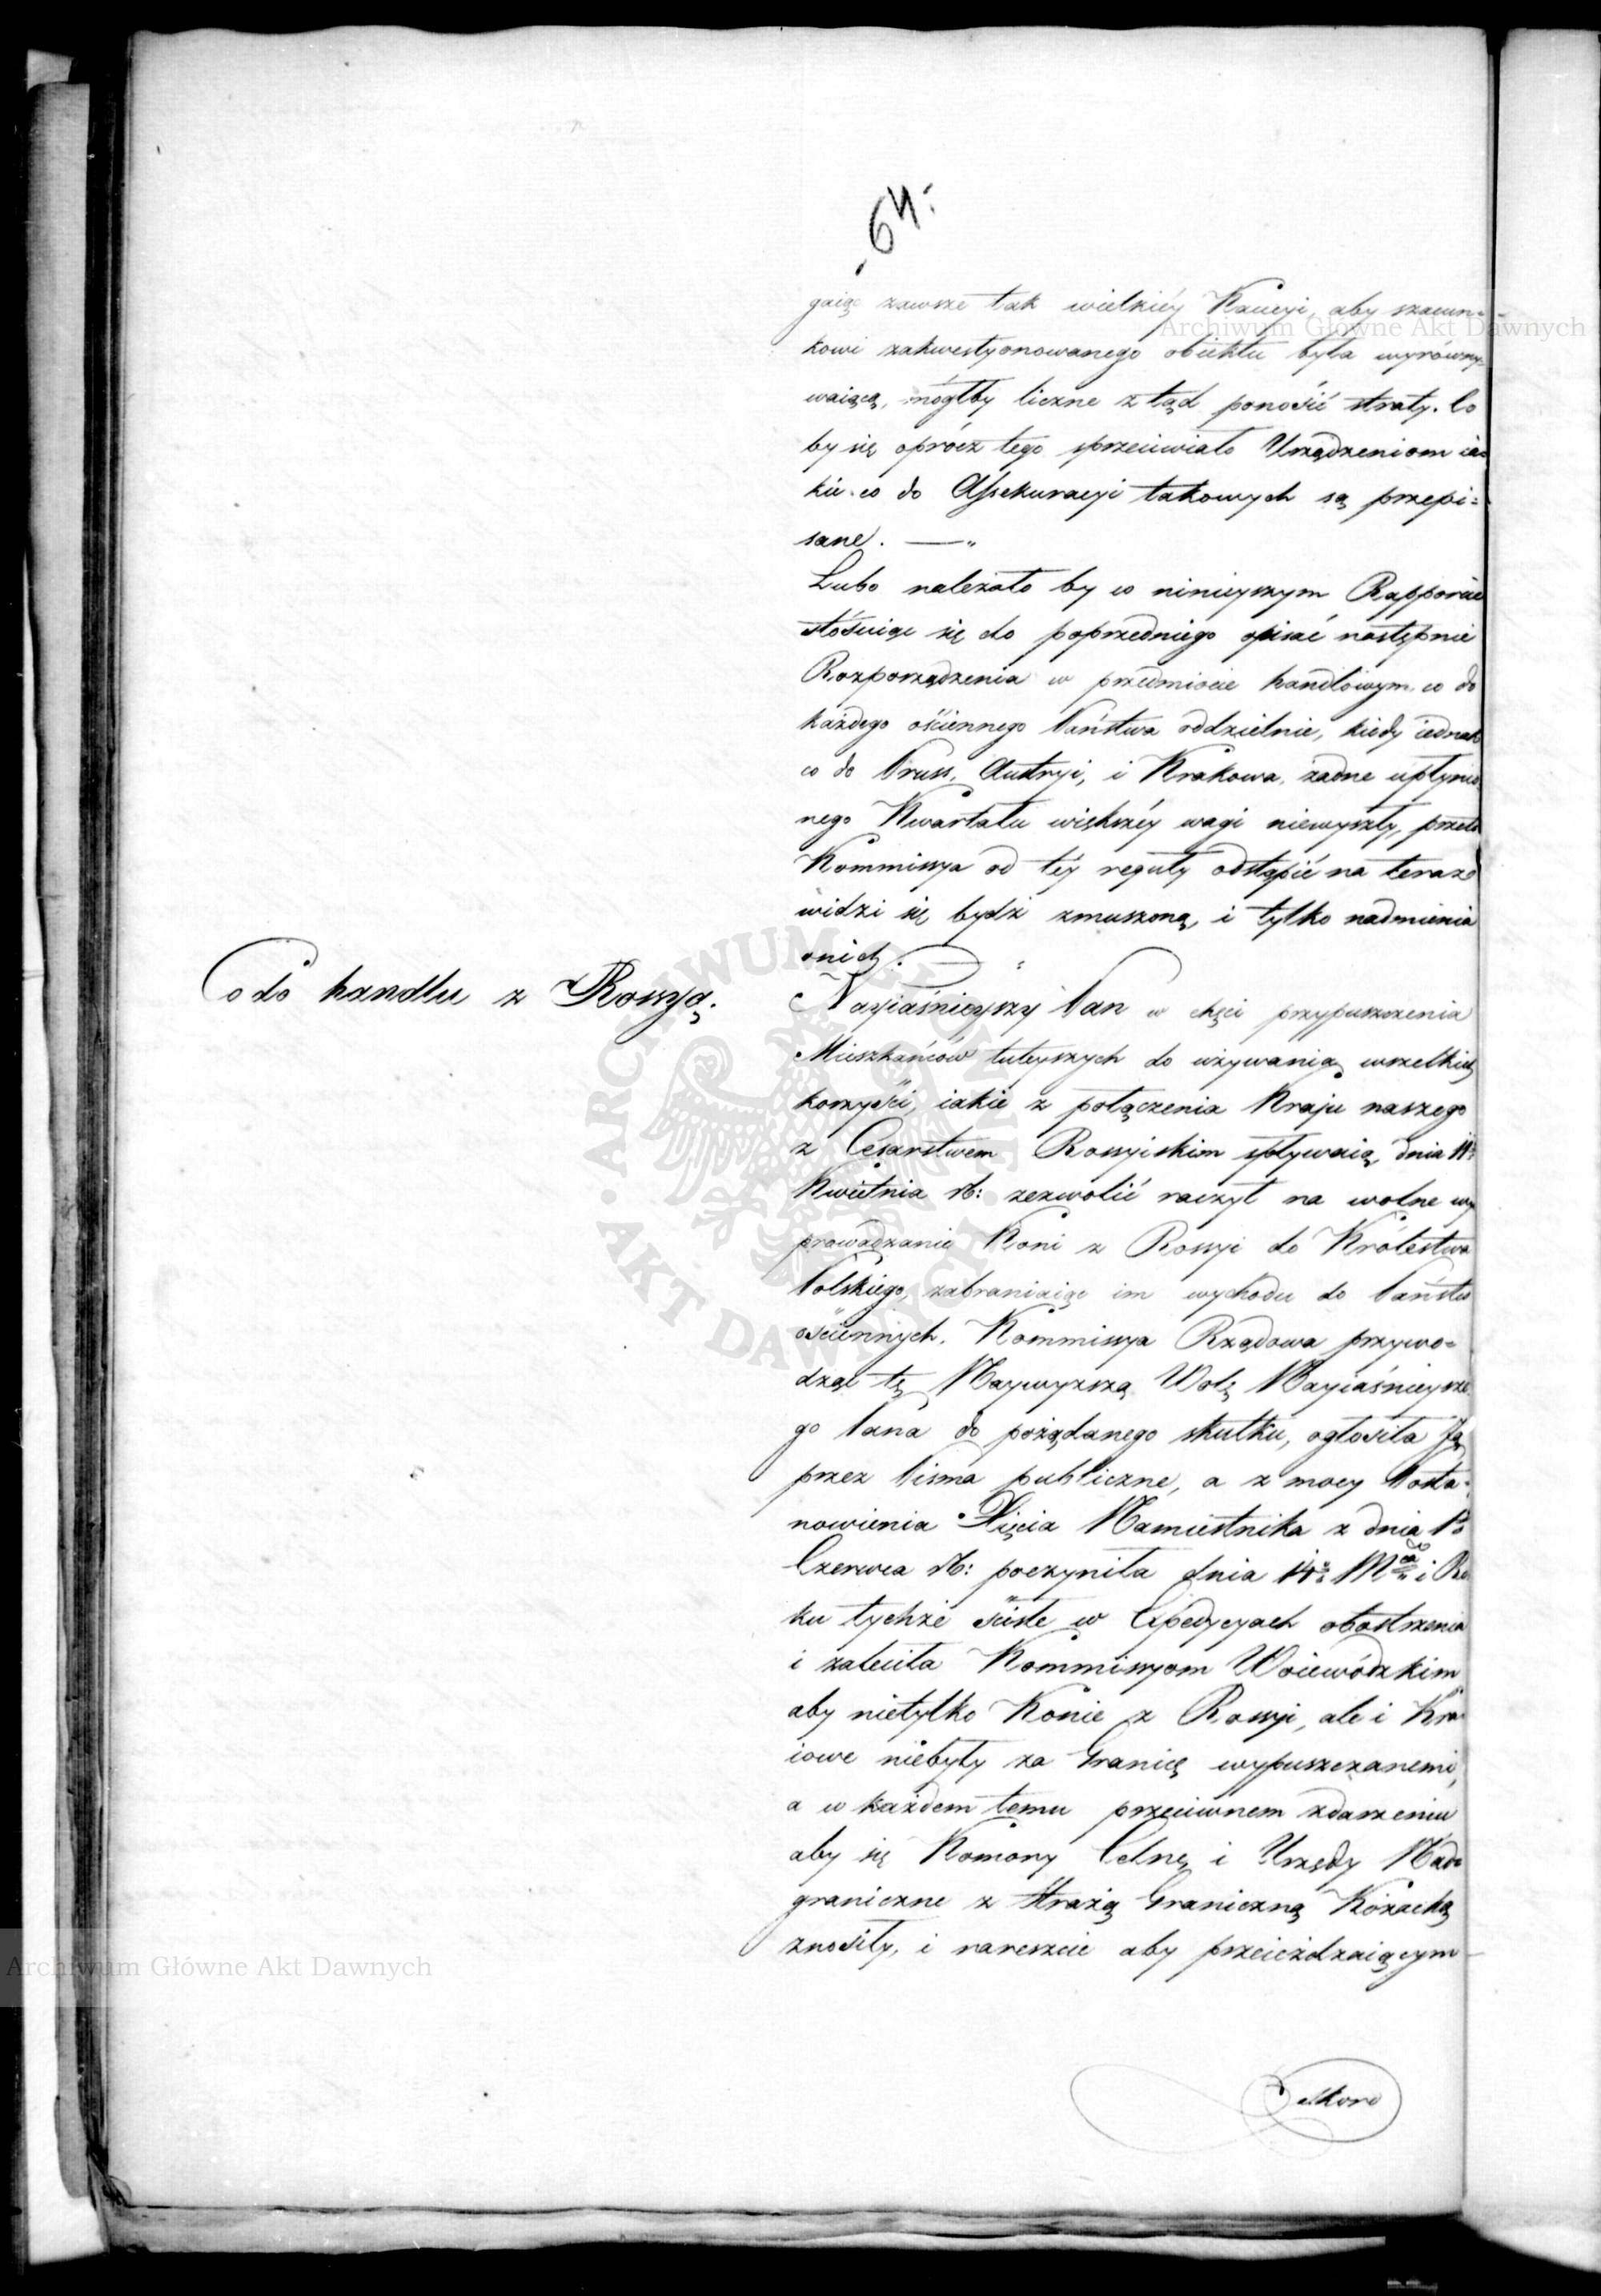 64.
gaiąc zawsze tak wielkiéy Kaucyi, aby szacun-
kowi zakwestyonowanego obiektu była wyrówny-
waiącą, mógłby liczne ztąd ponosić straty. Co
by się oprócz tego sprzeciwiało Urządzeniom ia-
kie co do Assekuracyi takowych są przepi-
sane. —
Lubo należało by w ninieyszym Rapporcie
stósuiąc się do poprzedniego opisać następnie
Rozporządzenia w przedmiocie handlowym co do
każdego ościennego Państwa oddzielnie, kiedy iednak
co do Pruss, Austryi, i Krakowa, żadne upłynio
nego Kwartału większéy wagi niewyszły, przeto
Kommissya od téy reguły odstąpić na teraz
widzi się bydź zmuszoną, i tylko nadmienia
o nich. —
Co do handlu z Rossyą.
Nayiaśnieyszy Pan w chęci przypuszczenia
Mieszkańców tuteyszych do używania wszelkich
korzyści, iakie z połączenia Kraju naszego
z Cesarstwem Rossyiskim spływaią, dnia 11
Kwietnia rb: zezwolić raczył na wolne wy
prowadzanie Koni z Rossyi do Królestwa
Polskiego, zabraniaiąc im wychodu do Państw
ościennych. Kommissya Rządowa przywo-
dząc tę Naywyższą Wolę Nayiaśnieysze
go Pana do pożądanego skutku, ogłosiła Ją
przez Pisma publiczne, a z mocy Posta-
nowienia Xięcia Namiestnika z dnia
Czerwca rb: poczyniła dnia 14 Mca i Ro
ku tychże ścisłe w Expedycyach obostrzenia
i zaleciła Kommissyom Woiewódzkim
aby nietylko Konie z Rossyi, ale i Kra
iowe niebyły za Granicę wypuszczanemi,
a w każdem temu przeciwnem zdarzeniu
aby się Komory Celne i Urzędy Nad
graniczne z Strażą Graniczną Kozacką
znosiły, i nareszcie aby przeieżdzaiącym
skoro
Archiwum Główne Akt Dawnych
Archiwum Główne Akt Dawnych